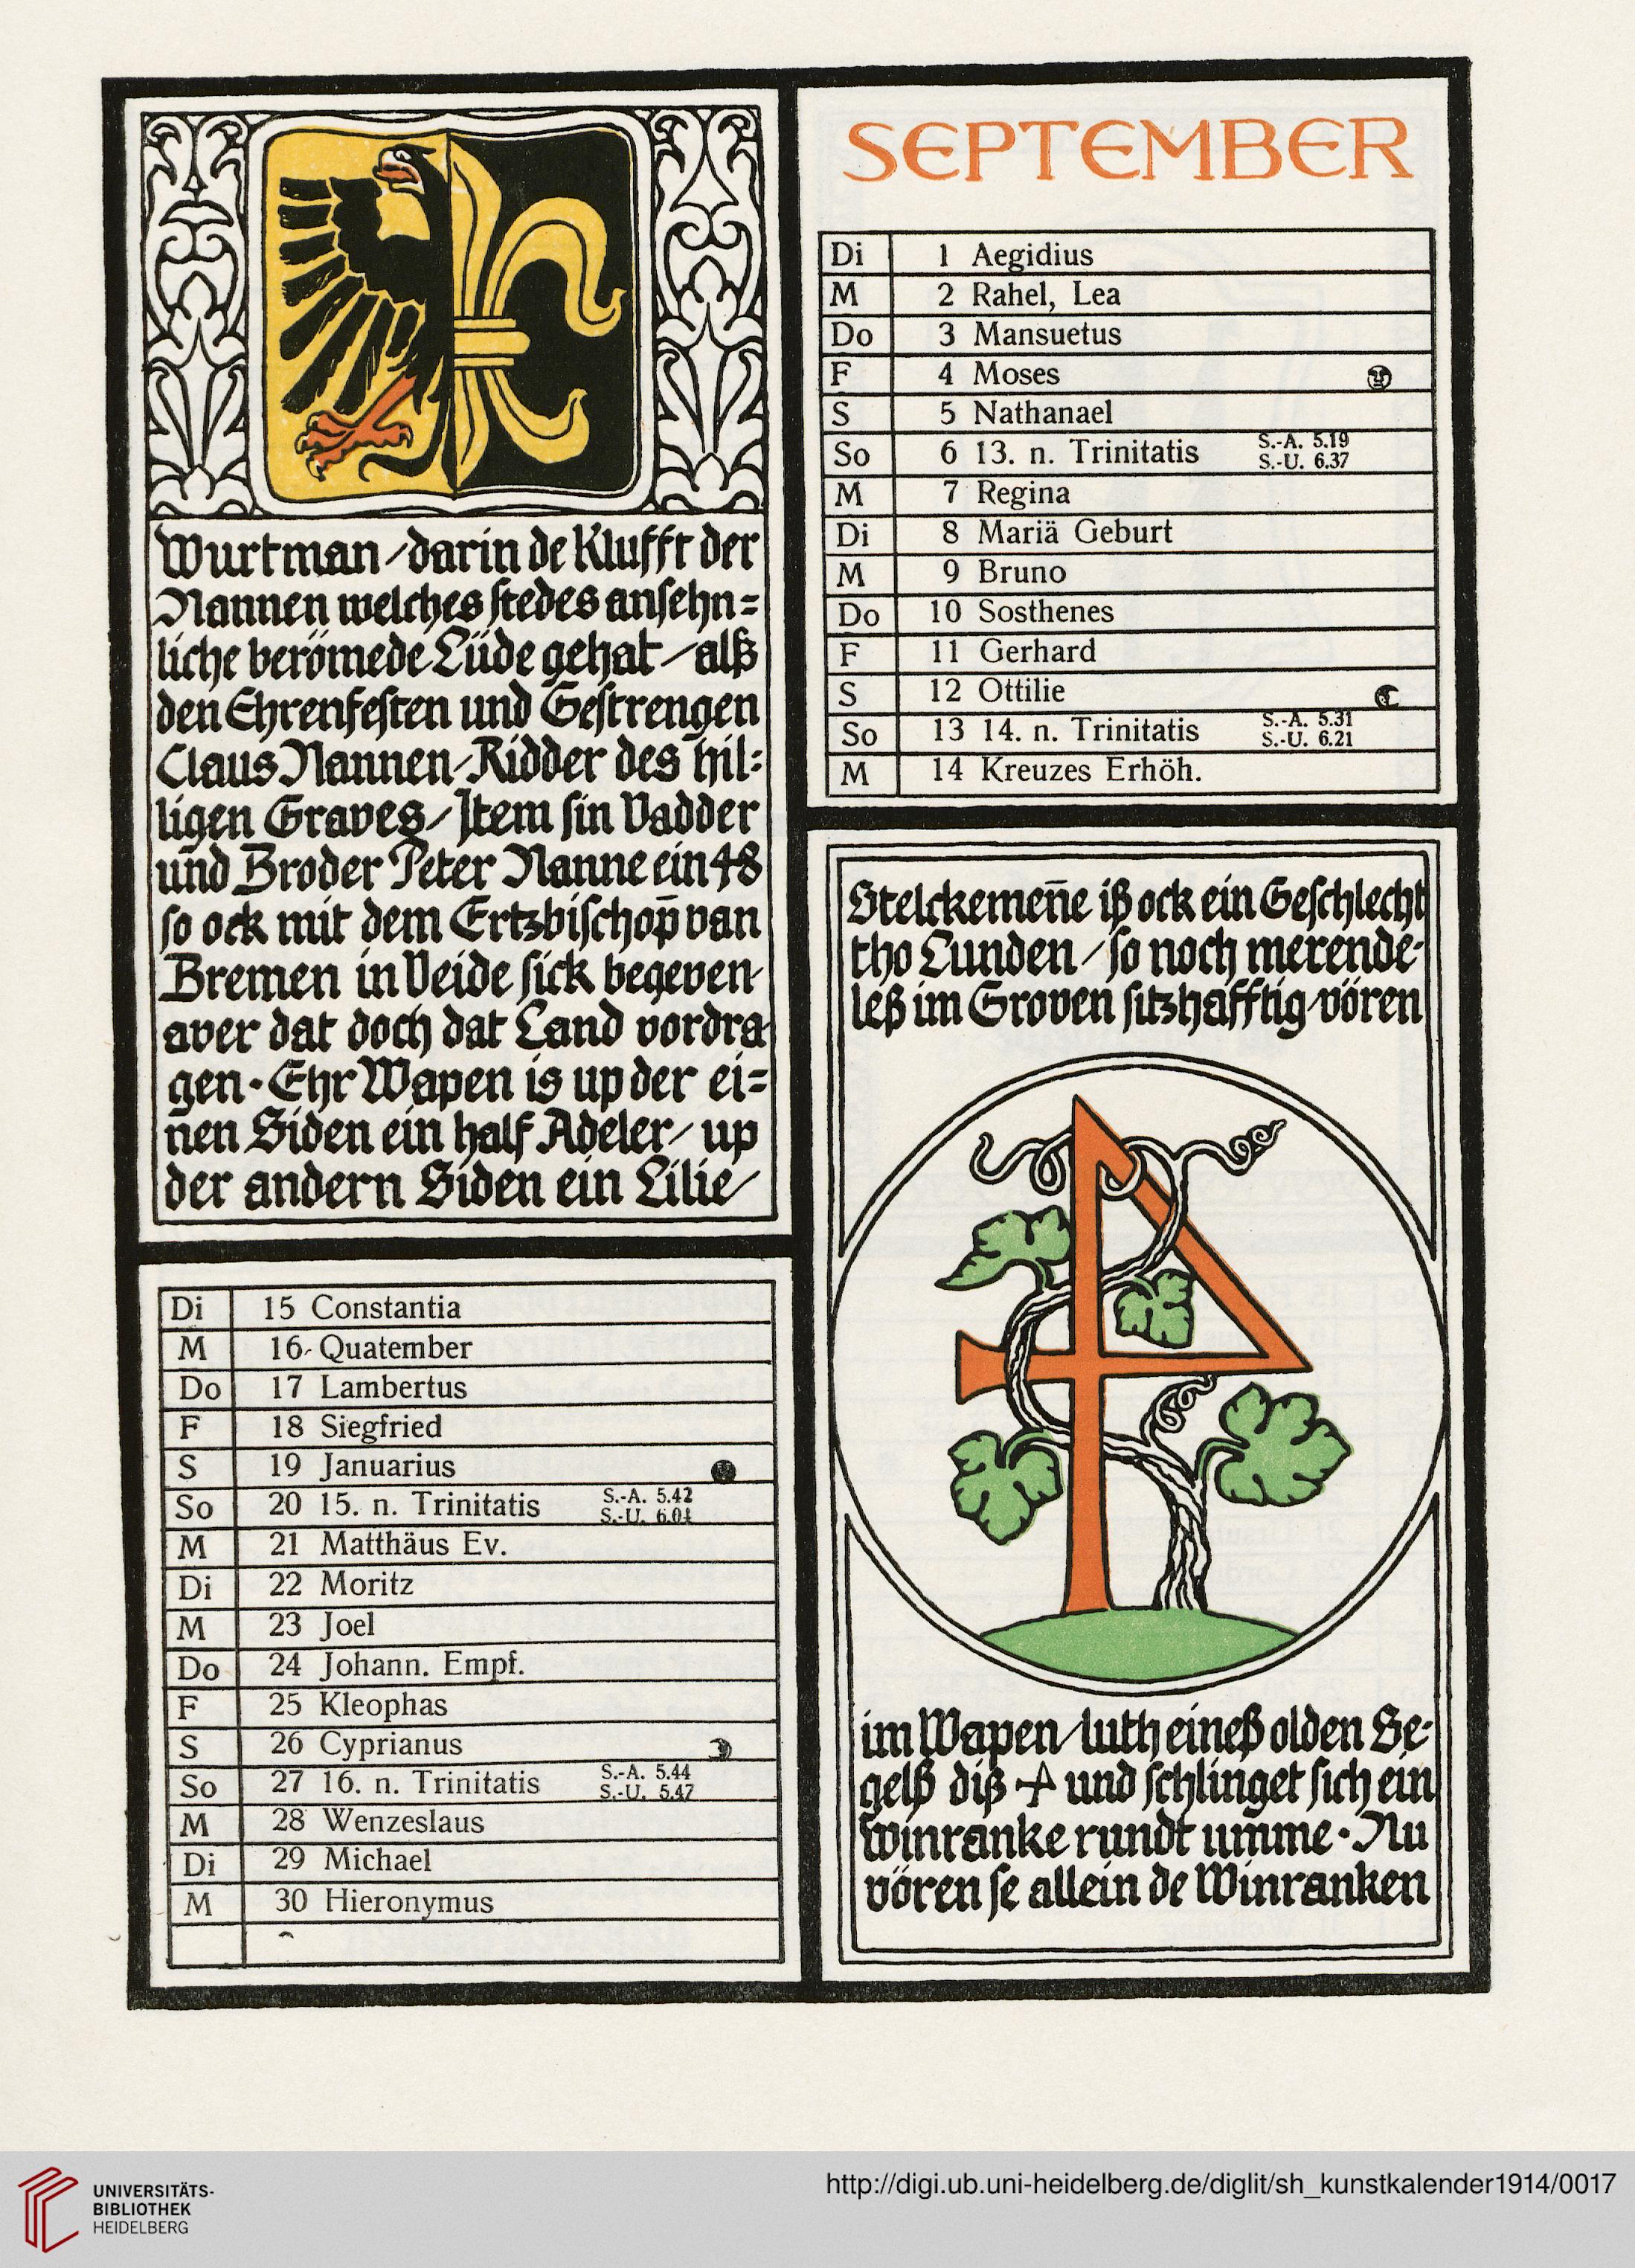 Wurtman/darin de Klufft der
Nannen welches stedes ansehn=
liche berömede Lüde gehat/alß
den Ehrenfesten und Gestrengen
Claus Nannen/Ridder des hil=
ligen Graves/Item sin Vadder
und Broder Peter Nanne ein 48
so ock mit dem Ertzbischop̄ van
Bremen in Veide sick begeven
aver dat doch dat Land vordra-
gen · Ehr Wapen is up der ei=
nen Siden ein half Adeler/up
der andern Siden ein Lilie/
SEPTEMBER
Di 1 Aegidius
M 2 Rahel, Lea
Do 3 Mansuetus
F 4 Moses
S 5 Nathanael
So 6 13. n. Trinitatis S.-A. 5.19
S.-U. 6.37
M 7 Regina
Di 8 Mariä Geburt
M 9 Bruno
Do 10 Sosthenes
F 11 Gerhard
S 12 Ottilie
So 13 14. n. Trinitatis S.-A. 5.31
S.-U. 6.21
M 14 Kreuzes Erhöh.
Di 15 Constantia
M 16 Quatember
Do 17 Lambertus
F 18 Siegfried
S 19 Januarius
So 20 15. n. Trinitatis S.-A. 5.42
S.-U. 6.04
M 21 Matthäus Ev.
Di 22 Moritz
M 23 Joel
Do 24 Johann. Empf.
F 25 Kleophas
S 26 Cyprianus
So 27 16. n. Trinitatis S.-A. 5.44
S.-U. 5.47
M 28 Wenzeslaus
Di 29 Michael
M 30 Hieronymus
Stelckemen̄e iß ock ein Geschlecht
tho Lunden/so noch merende-
leß im Groven sitzhafftig/vören
im Wapen/luth eineß olden Se-
gelß diß und schlinget sich ein
winranke rundt umme · Nu
vören se allein de Winranken
UNIVERSITÄTS-
BIBLIOTHEK
HEIDELBERG
http://digi.ub.uni-heidelberg.de/diglit/sh_kunstkalender1914/0017